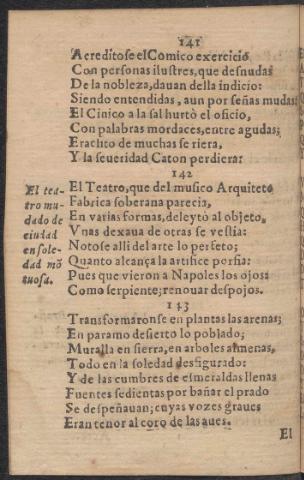 141
Acreditose el Comico exercicio
Con personas ilustres, que desnudas
De la nobleza, dauan della indicio:
Siendo entendidas, aun por señas mudas:
El Cinico a la sal hurtò el oficio,
Con palabras mordaces, entre agudas;
Eraclito de muchas se riera,
Y la seueridad Caton perdiera:
142
El tea-
tro mu-
dado de
ciudad
en sole-
dad mõ
tuosa.
El Teatro, que del musico Arquiteto
Fabrica soberana parecia,
En varias formas, deleytò al objeto,
Vnas dexaua de otras se vestia:
Notose alli del arte lo perfeto;
Quanto alcança la artifice porfia:
Pues que vieron a Napoles los ojos:
Como serpiente; renouar despojos.
143
Transformaronse en plantas las arenas;
En paramo desierto lo poblado;
Muralla en sierra, en arboles almenas,
Todo en la soledad desfigurado:
Y de las cumbres de esmeraldas llenas
Fuentes sedientas por bañar el prado
Se despeñauan; cuyas vozes graues
Eran tenor al coro de las aues.
El